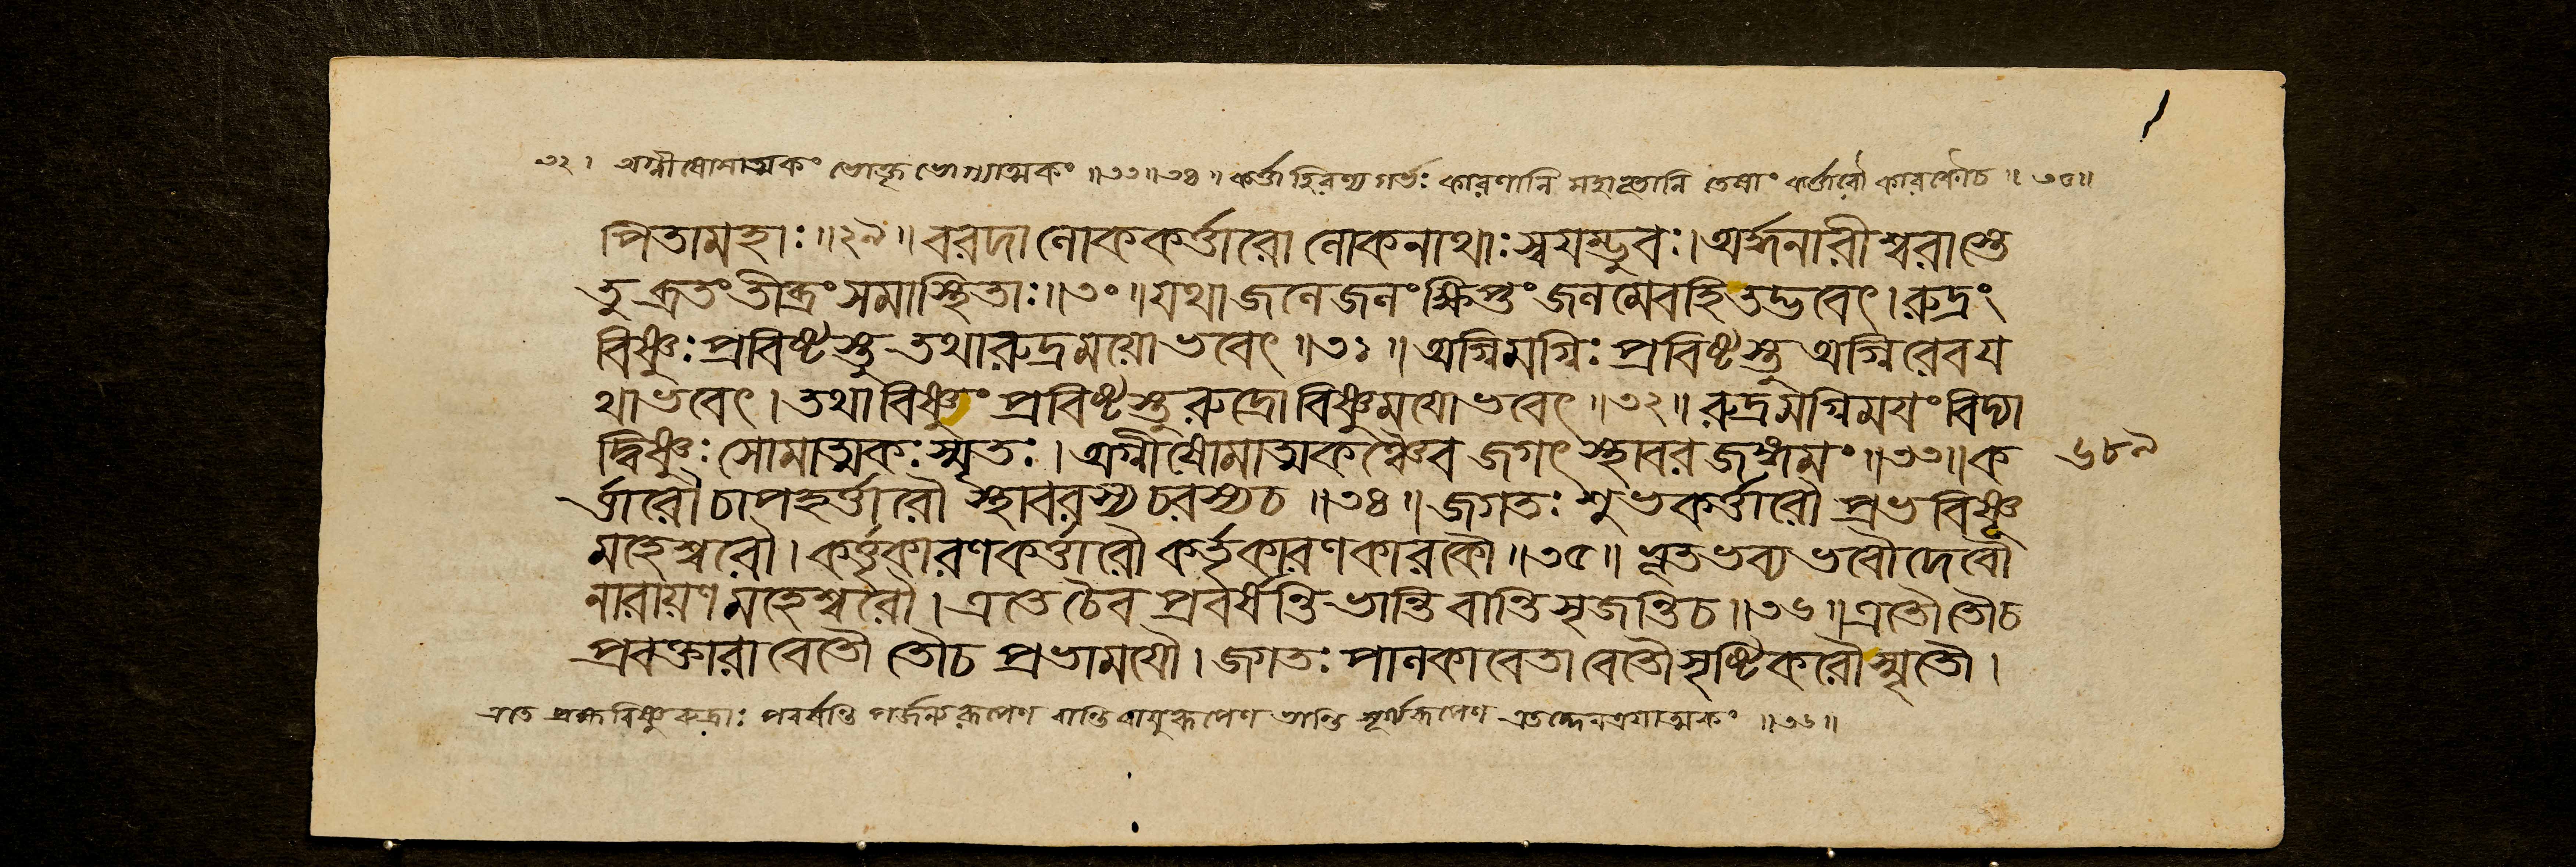 ৩২। অগ্নীষোমাত্মকং ভোক্তৃভোগ্যাত্মকং ॥৩৩॥৩৪॥ কর্ত্তা হিরণ্যগর্ভঃ কারণানি মহাভূতানি তেষাং কর্ত্তারৌ কারকৌচ ॥৩৫॥
পিতামহাঃ॥২৯॥বরদা লোককর্ত্তারো লোকনাথাঃস্বয়ম্ভুবঃ।অর্দ্ধনারীশ্বরাস্তে
তু ব্রতংতীব্রংসমাস্থিতাঃ॥৩০॥যথা জলে জলং ক্ষিপ্তং জলমেবহি তদ্ভবেৎ।রুদ্রং
বিষ্ণুঃপ্রবিষ্টস্তু তথারুদ্রময়োভবেৎ॥৩১॥অগ্নিমগ্নিঃপ্রবিষ্টস্তু অগ্নিরেবয
থাভবেৎ।তথাবিষ্ণুং প্রবিষ্টস্তুরুদ্রোবিষ্ণুময়োভবেৎ॥৩২॥রুদ্রমগ্নিময়ংবিদ্যা
দ্বিষ্ণুঃসোমাত্মকঃস্মৃতঃ।অগ্নীষোমাত্মকঞ্চৈব জগৎস্থাবরজঙ্গমং॥৩৩॥ক ৬৮৯
র্ত্তারৌচাপহর্ত্তারৌ স্থাবরস্যচরস্যচ॥৩৪॥জগতঃশুভকর্ত্তারৌ প্রভবিষ্ণূ
মহেশ্বরৌ।কর্ত্তৃকারণকর্ত্তারৌকর্ত্তৃকারণকারকৌ॥৩৫॥ভূতভব্যভবৌদেবৌ
নারায়ণমহেশ্বরৌ।এতেচৈব প্রবর্ষন্তিভান্তিবান্তিসৃজন্তিচ॥৩৬॥এতৌতৌচ
প্রবক্তারাবেতৌ তৌচ প্রভাময়ৌ।জগতঃপালকাবেতাবেতৌসৃষ্টিকরৌস্মৃতৌ।
এতে ব্রহ্মবিষ্ণুরুদ্রাঃ প্রবর্ষন্তি পর্জন্যরূপেণ বান্তি বায়ুরূপেণ ভান্তি সূর্য্যরূপেণ এতদ্দেবত্রয়াত্মকং ॥৩৬॥